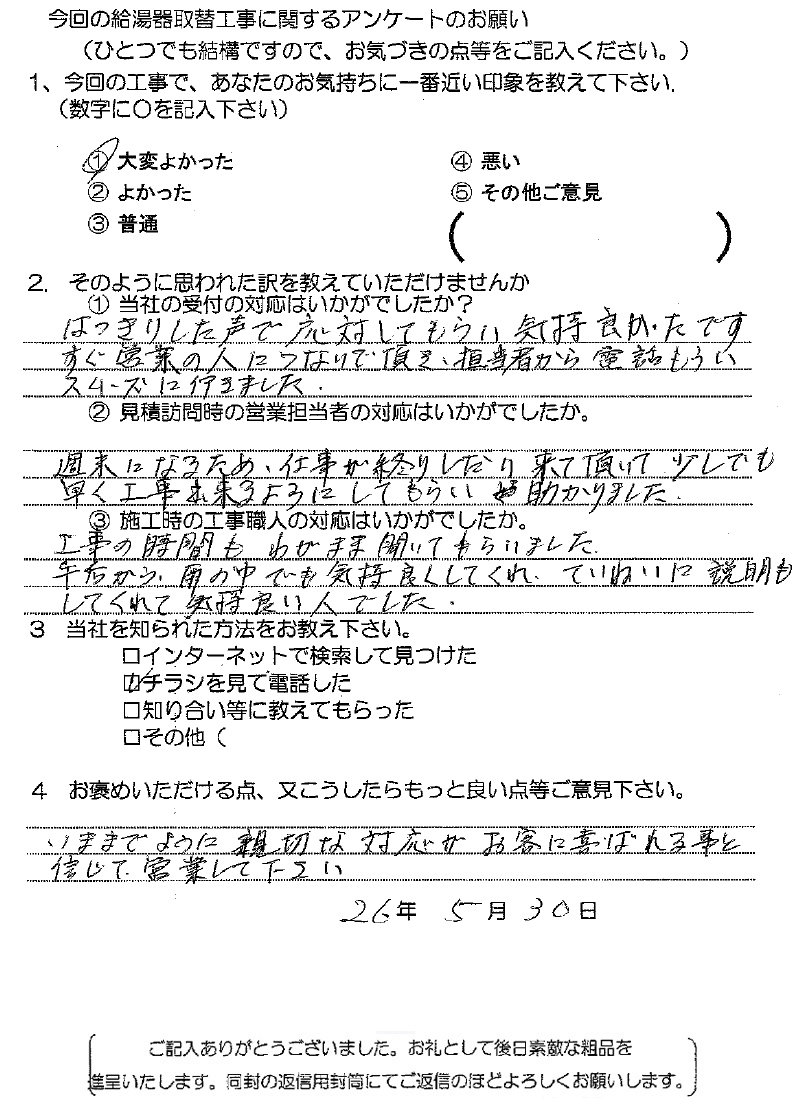 今回の給湯器取替工事に関するアンケートのお願い
（ひとつでも結構ですので、お気づきの点等をご記入ください。）
1、今回の工事で、あなたのお気持ちに一番近い印象を教えて下さい.
（数字に〇を記入下さい）
① 大変よかった ④ 悪い
② よかった ⑤ その他ご意見
③ 普通 （ ）
2. そのように思われた訳を教えていただけませんか
① 当社の受付の対応はいかがでしたか？
はっきりした声で応対してもらい気持良かったです
すぐ営業の人につないで頂き、担当者から電話もらい
スムーズに行きました.
② 見積訪問時の営業担当者の対応はいかがでしたか。
週末になるため、仕事が終りしだい来て頂いて少しでも
早く工事出来るようにしてもらい助かりました.
③ 施工時の工事職人の対応はいかがでしたか。
工事の時間もわがまま聞いてもらいました.
午后から、雨の中でも気持良くしてくれ、ていねいに説明も
してくれて気持良い人でした.
3 当社を知られた方法をお教え下さい。
□インターネットで検索して見つけた
☑チラシを見て電話した
□知り合い等に教えてもらった
□その他（
4 お褒めいただける点、又こうしたらもっと良い点等ご意見下さい。
いままでように親切な対応がお客に喜ばれる事と
信じて営業して下さい
26年 5月 30日
ご記入ありがとうございました。お礼として後日素敵な粗品を
進呈いたします。同封の返信用封筒にてご返信のほどよろしくお願いします。